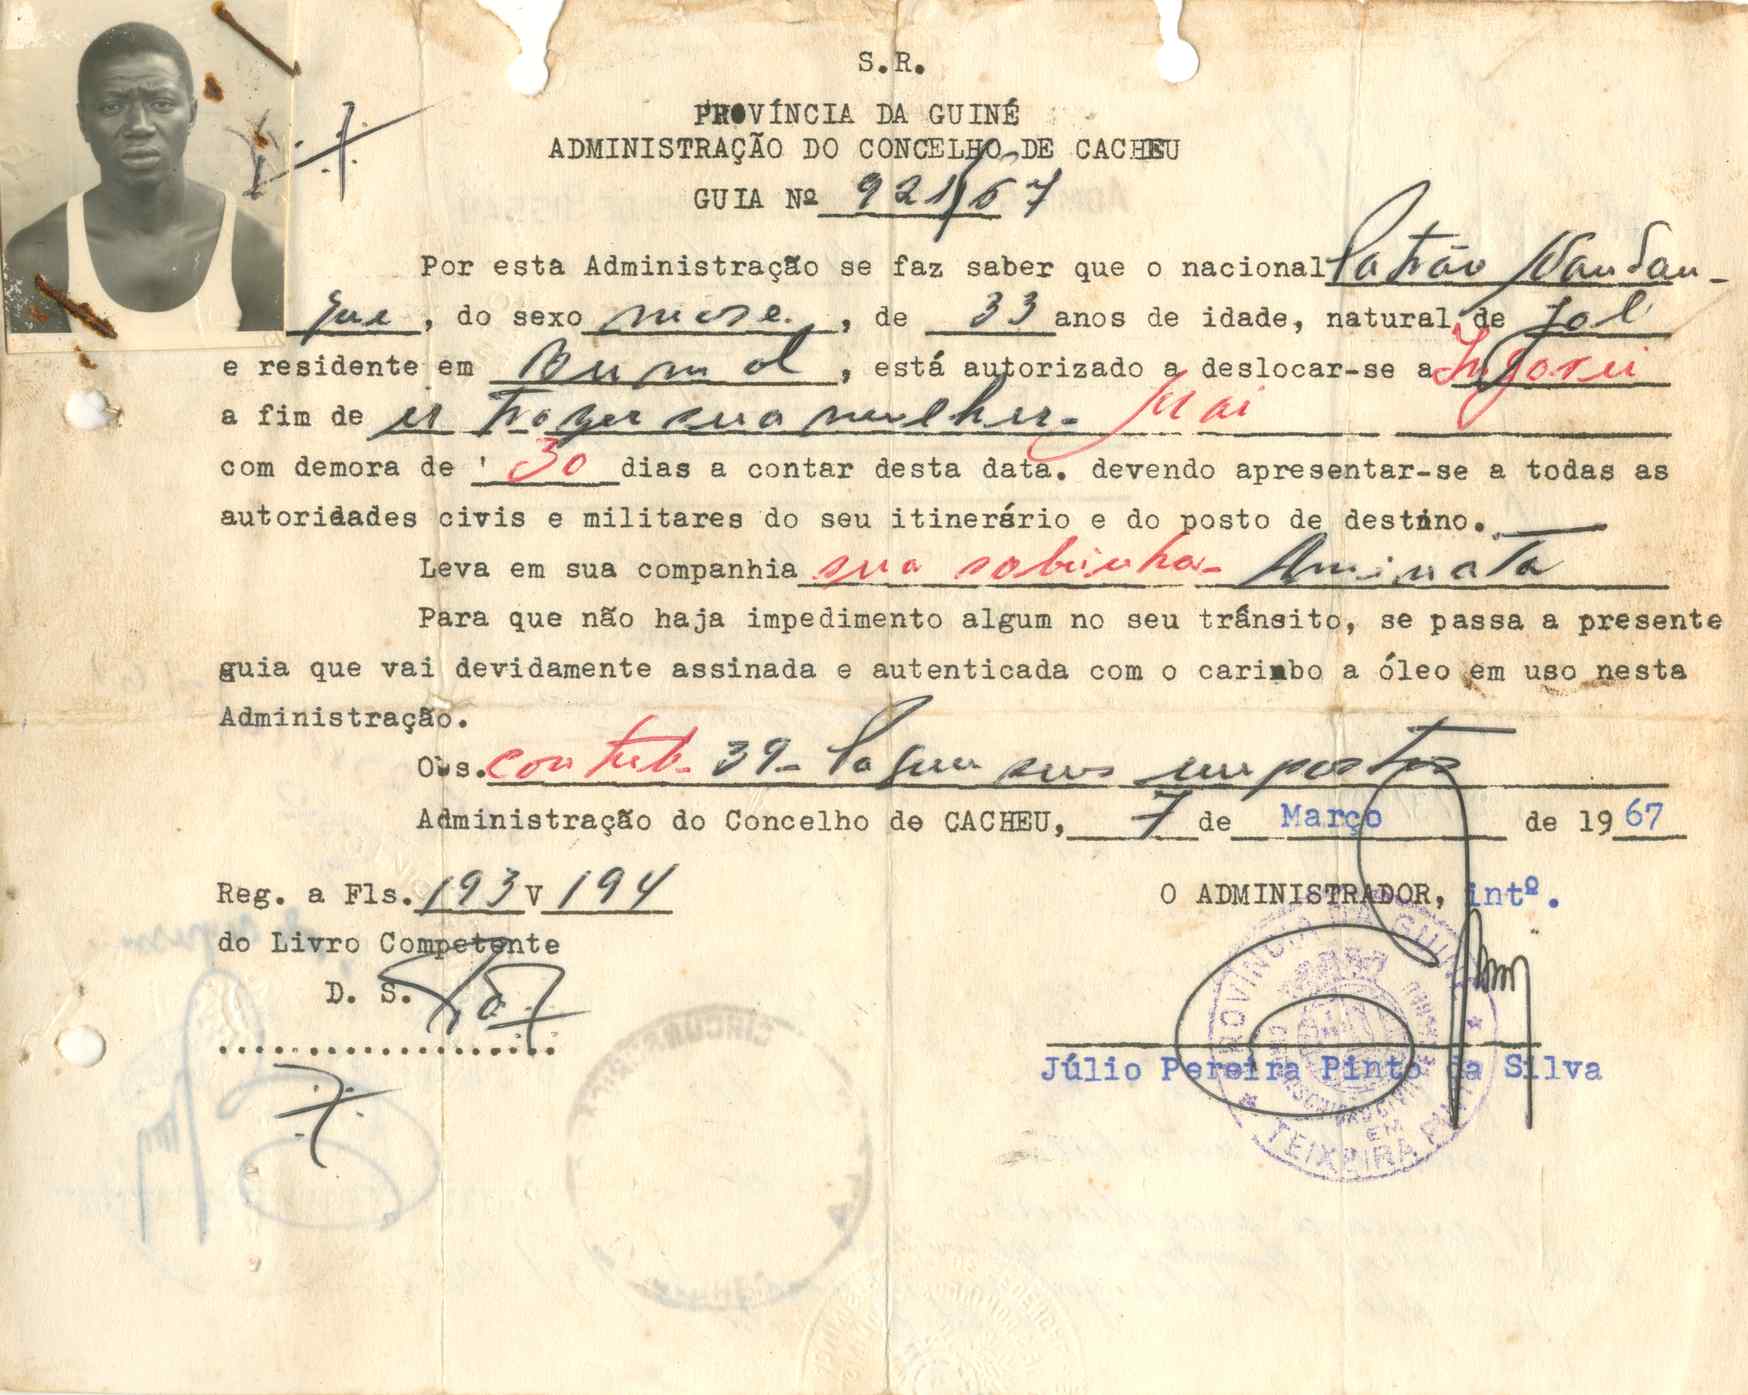 S.R.
PROVÍNCIA DA GUINÉ
ADMINISTRAÇÃO DO CONCELHO DE CACHEU
GUIA Nº 921/67
Por esta Administração se faz saber que o nacional Patrão
, do sexo masc. , de 33 anos de idade, natural de Jol
e residente em , está autorizado a deslocar-se a
a fim de ir trazer sua mulher-
com demora de 30 dias a contar desta data. devendo apresentar-se a todas as
autoridades civis e militares do seu itinerário e do posto de destino.
Leva em sua companhia sua sobrinha- Aminata
Para que não haja impedimento algum no seu trânsito, se passa a presente
guia que vai devidamente assinada e autenticada com o carimbo a óleo em uso nesta
Administração.
Obs. contrib. 39- Pagou seus impostos
Administração do Concelho de CACHEU, 7 de Março de 1967
Reg. a Fls. 193 V 194
O ADMINISTRADOR, intº.
do Livro Competente
D. S.
Júlio Pereira Pinto da Silva
PROVÍNCIA DA GUINÉ
EM
TEIXEIRA PINTO